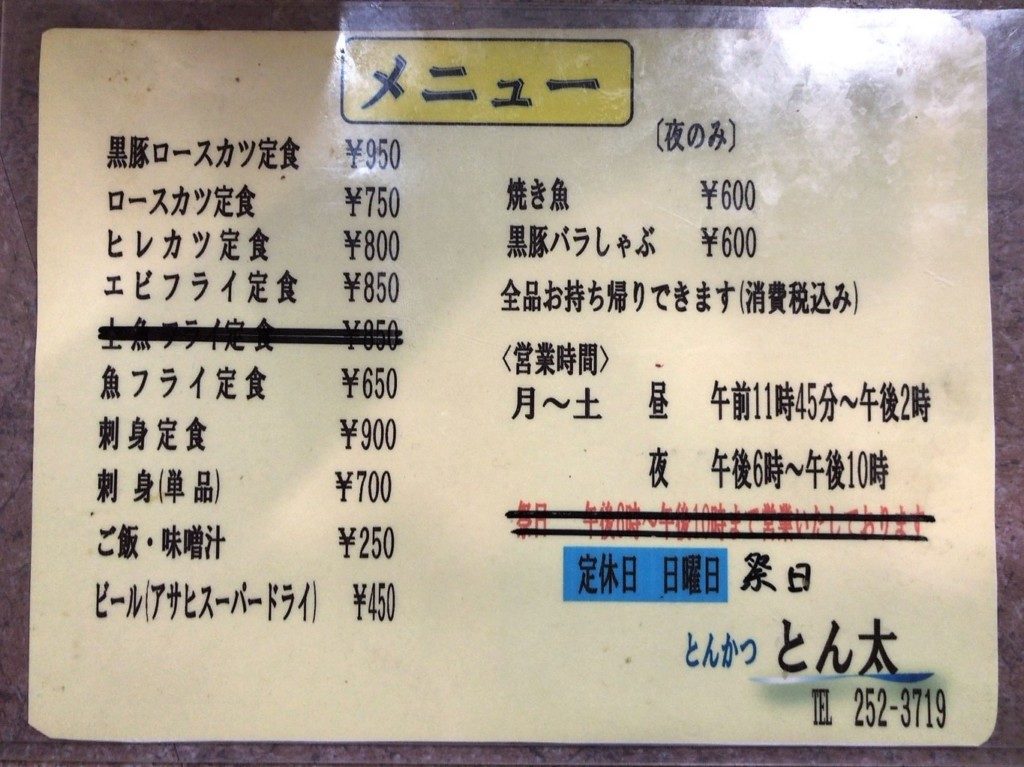 メニュー
黒豚ロースカツ定食 ￥950
ロースカツ定食 ￥750
ヒレカツ定食 ￥800
エビフライ定食 ￥850
魚フライ定食 ￥850
魚フライ定食 ￥650
刺身定食 ￥900
刺身(単品) ￥700
ご飯・味噌汁 ￥250
ビール(アサヒスーパードライ) ￥450
〔夜のみ〕
焼き魚 ￥600
黒豚バラしゃぶ ￥600
全品お持ち帰りできます(消費税込み)
〈営業時間〉
月～土 昼 午前11時45分～午後2時
夜 午後6時～午後10時
祭日 午後6時～午後10時まで営業いたしております
定休日 日曜日 祭日
とんかつ とん太
TEL 252-3719